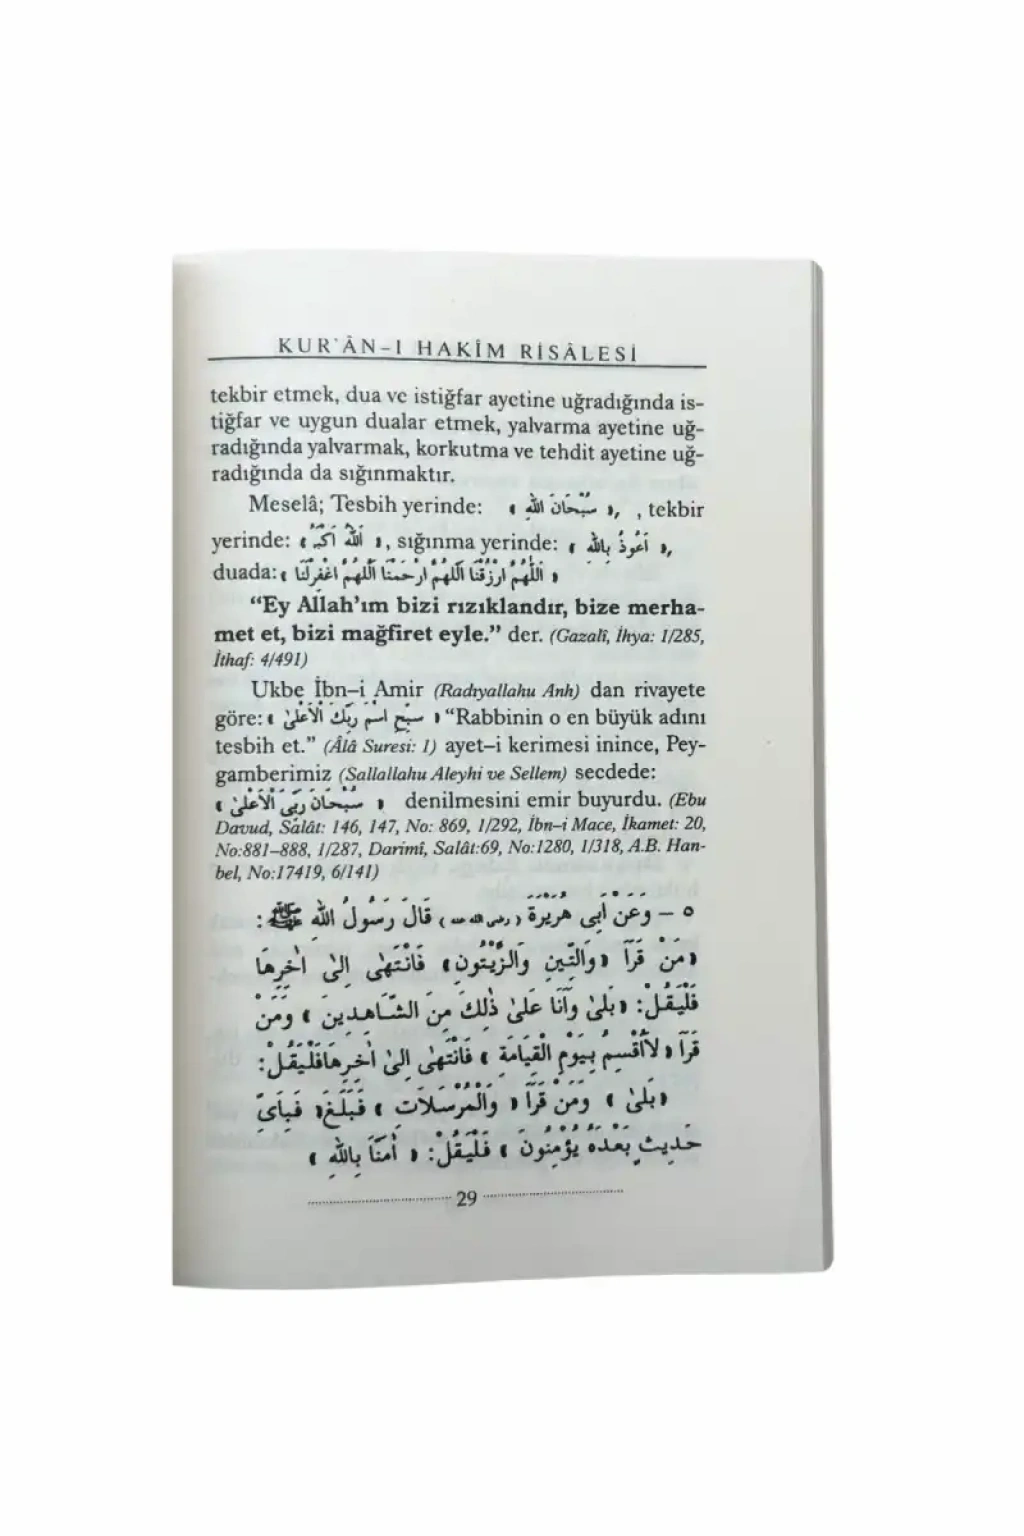 KUR'ÂN–I HAKÎM RİSÂLESİ
tekbir etmek, dua ve istiğfar ayetine uğradığında is-
tiğfar ve uygun dualar etmek, yalvarma ayetine uğ-
radığında yalvarmak, korkutma ve tehdit ayetine uğ-
radığında da sığınmaktır.
Meselâ; Tesbih yerinde: « سُبْحَانَ اللهِ », , tekbir
yerinde: « اَللهُ اَكْبَرُ », sığınma yerinde: « اَعُوذُ بِاللهِ »,
duada: « اَللّٰهُمَّ ارْزُقْنَا اَللّٰهُمَّ ارْحَمْنَا اَللّٰهُمَّ اغْفِرْلَنَا »
“Ey Allah’ım bizi rızıklandır, bize merha-
met et, bizi mağfiret eyle.” der. (Gazalî, İhya: 1/285,
İthaf: 4/491)
Ukbe İbn–i Amir (Radıyallahu Anh) dan rivayete
göre: « سَبِّحِ اسْمَ رَبِّكَ الْاَعْلٰىۙ » “Rabbinin o en büyük adını
tesbih et.” (Âlâ Suresi: 1) ayet–i kerimesi inince, Pey-
gamberimiz (Sallallahu Aleyhi ve Sellem) secdede:
« سُبْحَانَ رَبِّىَ الْاَعْلٰى » denilmesini emir buyurdu. (Ebu
Davud, Salât: 146, 147, No: 869, 1/292, İbn–i Mace, İkamet: 20,
No:881–888, 1/287, Darimî, Salât:69, No:1280, 1/318, A.B. Han-
bel, No:17419, 6/141)
٥ – وَعَنْ اَبِى هُرَيْرَةَ (رضى الله عنه) قَالَ رَسُولُ اللهِ ﷺ :
«مَنْ قَرَاَ «وَالتِّينِ وَالزَّيْتُونِ» فَانْتَهٰى اِلٰى اٰخِرِهَا
فَلْيَقُلْ: «بَلٰى وَاَنَا عَلٰى ذٰلِكَ مِنَ الشَّاهِدِينَ» وَمَنْ
قَرَاَ «لَااُقْسِمُ بِيَوْمِ الْقِيَامَةِ» فَانْتَهٰى اِلٰى اٰخِرِهَافَلْيَقُلْ:
«بَلٰى» وَمَنْ قَرَاَ «وَالْمُرْسَلَاتِ» فَبَلَغَ «فَبِاَىِّ
حَدِيثٍ بَعْدَهُ يُؤْمِنُونَ» فَلْيَقُلْ: «اٰمَنَّا بِاللهِ»
29